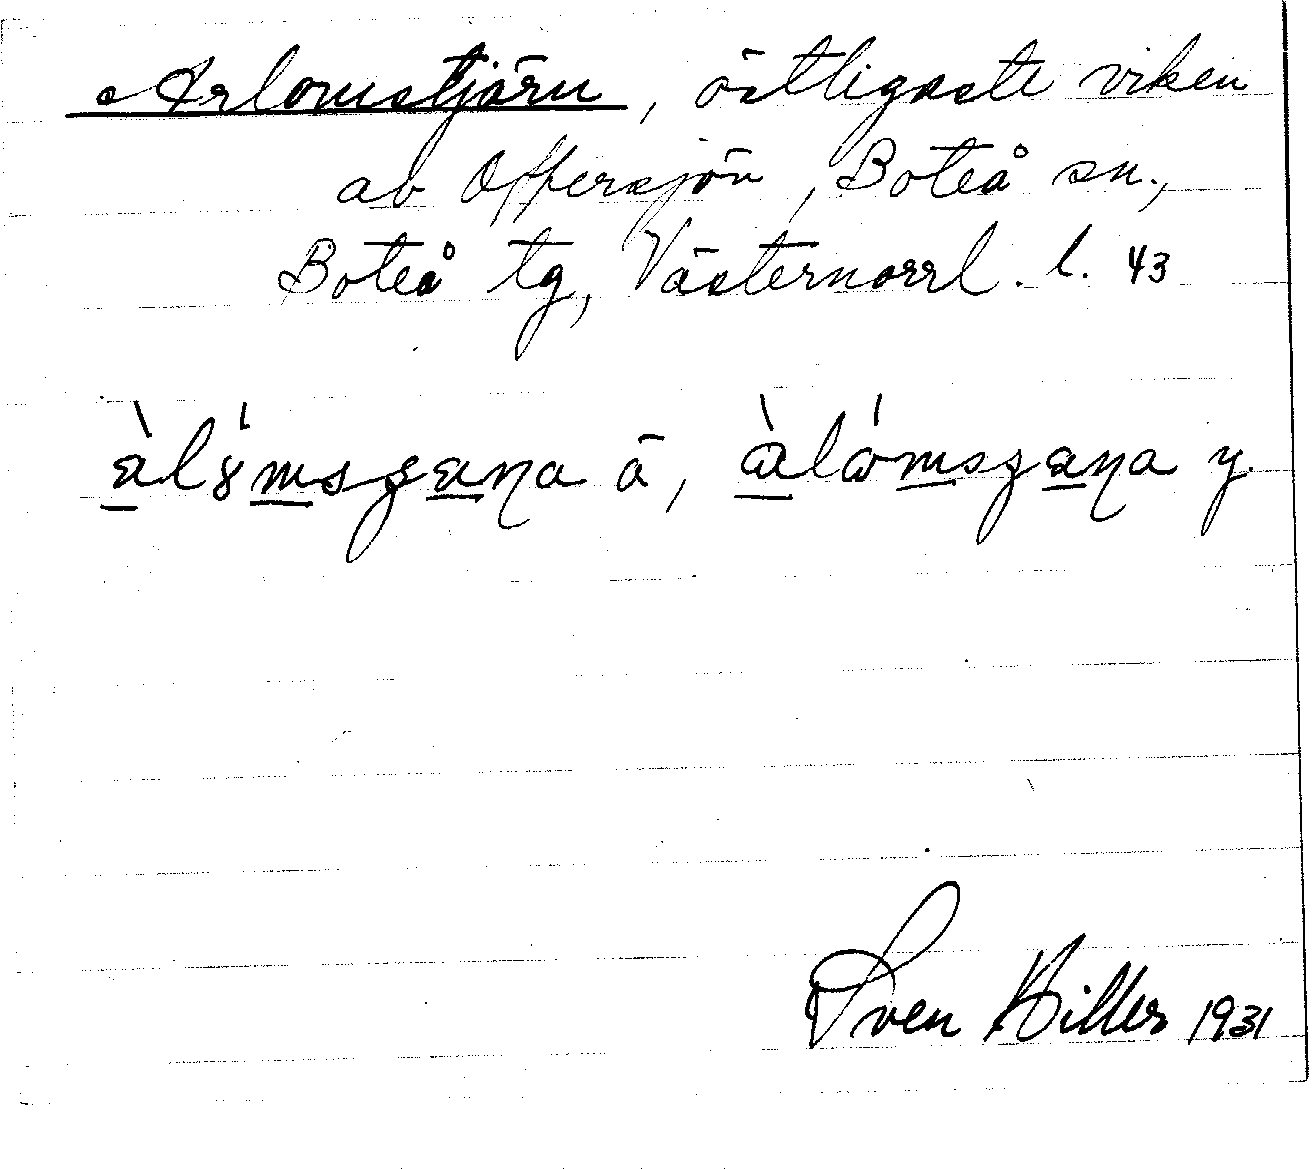 Arlomstjärn, östligaste viken
av Offersjön, Boteå sn.,
Boteå tg, Västernorrl. l. 43
ä, y.
Sven Hiller 1931